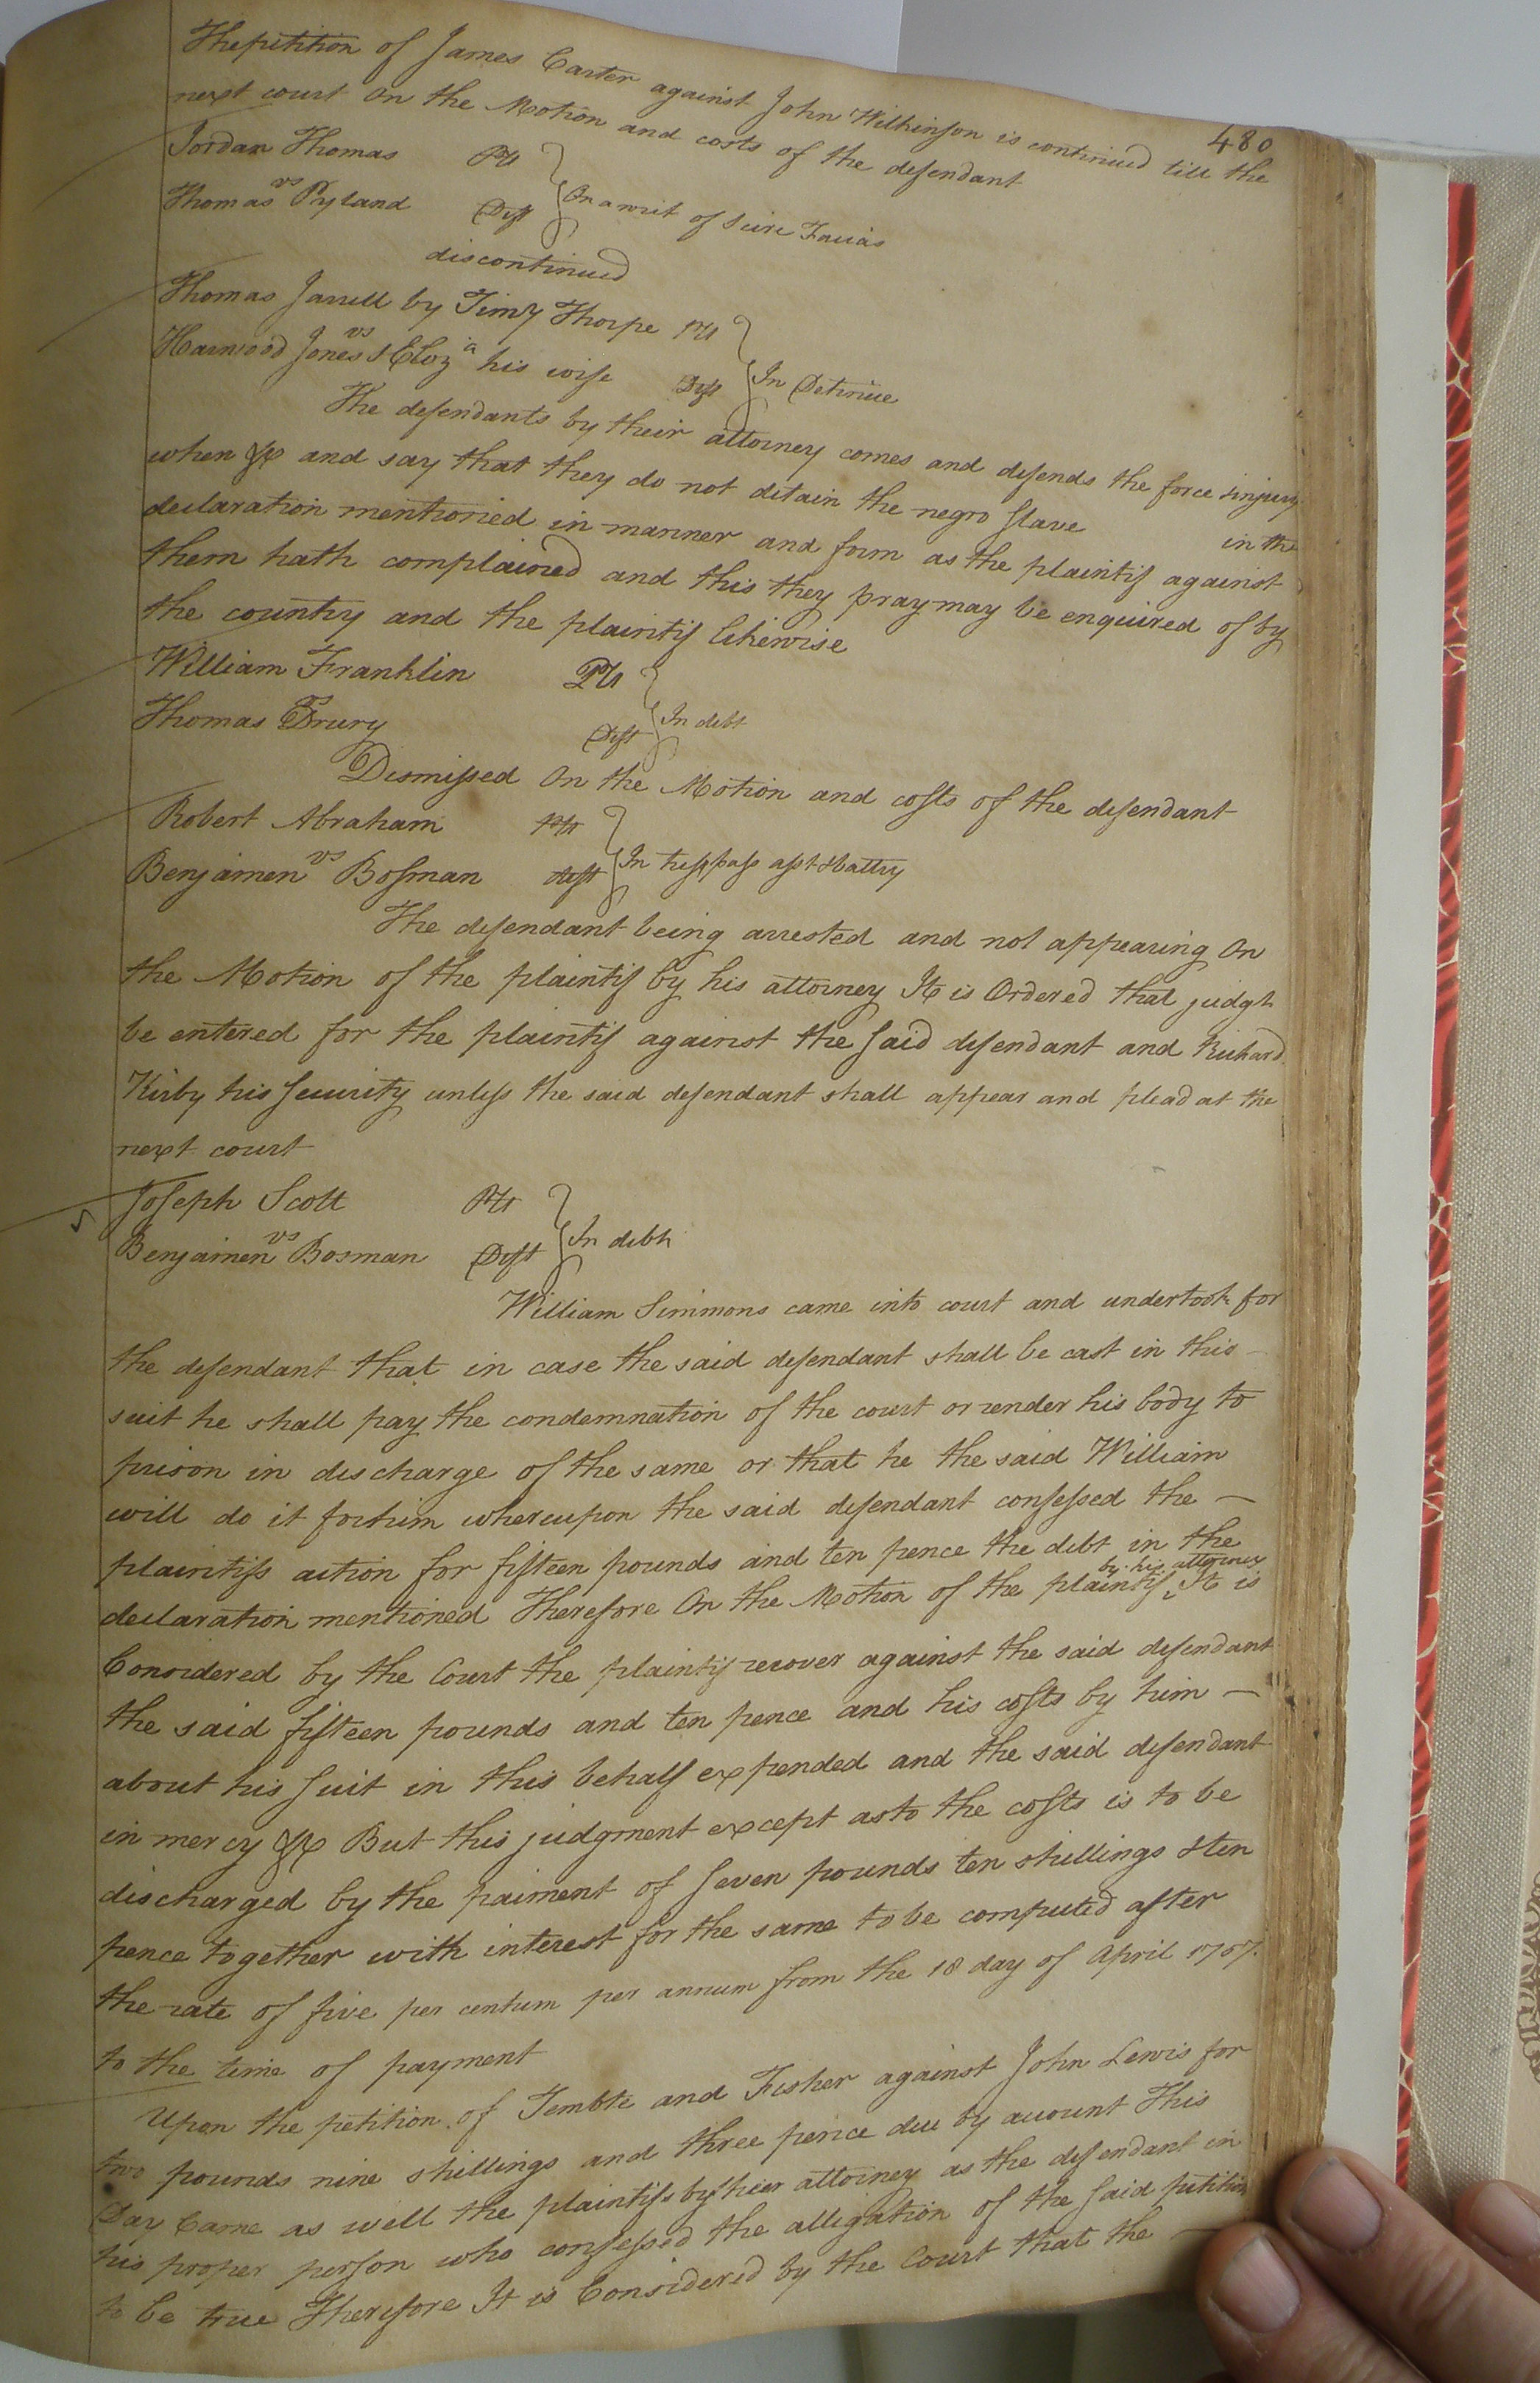 480
The petition of James Carter against John Wilkinson is continued till the
next court On the Motion and costs of the defendant
Jordan Thomas Plt
vs
Thomas Pyland Deft
On a writ of Scire Facias
discontinued
Thomas Jarrell by Timy Thorpe Plt
vs
Harwood Jones & Eliza his wife Deft
In Detinue
The defendants by their attorney comes and defends the force & injury
when &c and say that they do not detain the negro slave in the
declaration mentioned in manner and form as the plaintif against
them hath complained and this they pray may be enquired of by
the country and the plaintif likewise
William Franklin Plt
vs
Thomas Drury Deft
In debt
Dismissed On the Motion and costs of the defendant
Robert Abraham Plt
vs
Benjamen Bosman deft
In trespass asst & battry
The defendant being arrested and not appearing On
the Motion of the plaintif by his attorney It is Ordered that judgt
be entered for the plaintif against the said defendant and Richard
Kirby his security unless the said defendant shall appear and plead at the
next court
Joseph Scott Plt
vs
Benjamen Bosman Deft
In debt
William Simmons came into court and undertook for
the defendant that in case the said defendant shall be cast in this
suit he shall pay the condemnation of the court or render his body to
prison in discharge of the same or that he the said William
will do it for him whereupon the said defendant confessed the
plaintifs action for fifteen pounds and ten pence the debt in the
by his attorney
declaration mentioned Therefore On the Motion of the plaintif ^ It is
Considered by the Court the plaintif recover against the said defendant
the said fifteen pounds and ten pence and his costs by him
about his suit in this behalf expended and the said defendant
in mercy &c But this judgment except as to the costs is to be
discharged by the paiment of seven pounds ten shillings & ten
pence together with interest for the same to be computed after
the rate of five per centum per annum from the 18 day of April 1757.
to the time of payment
Upon the petition of Temble and Fisher against John Lewis for
two pounds nine shillings and three pence due by account This
Day Came as well the plaintifs by their attorney as the defendant in
his proper person who confessed the allegation of the said petition
to be true Therefore It is Considered by the Court that the